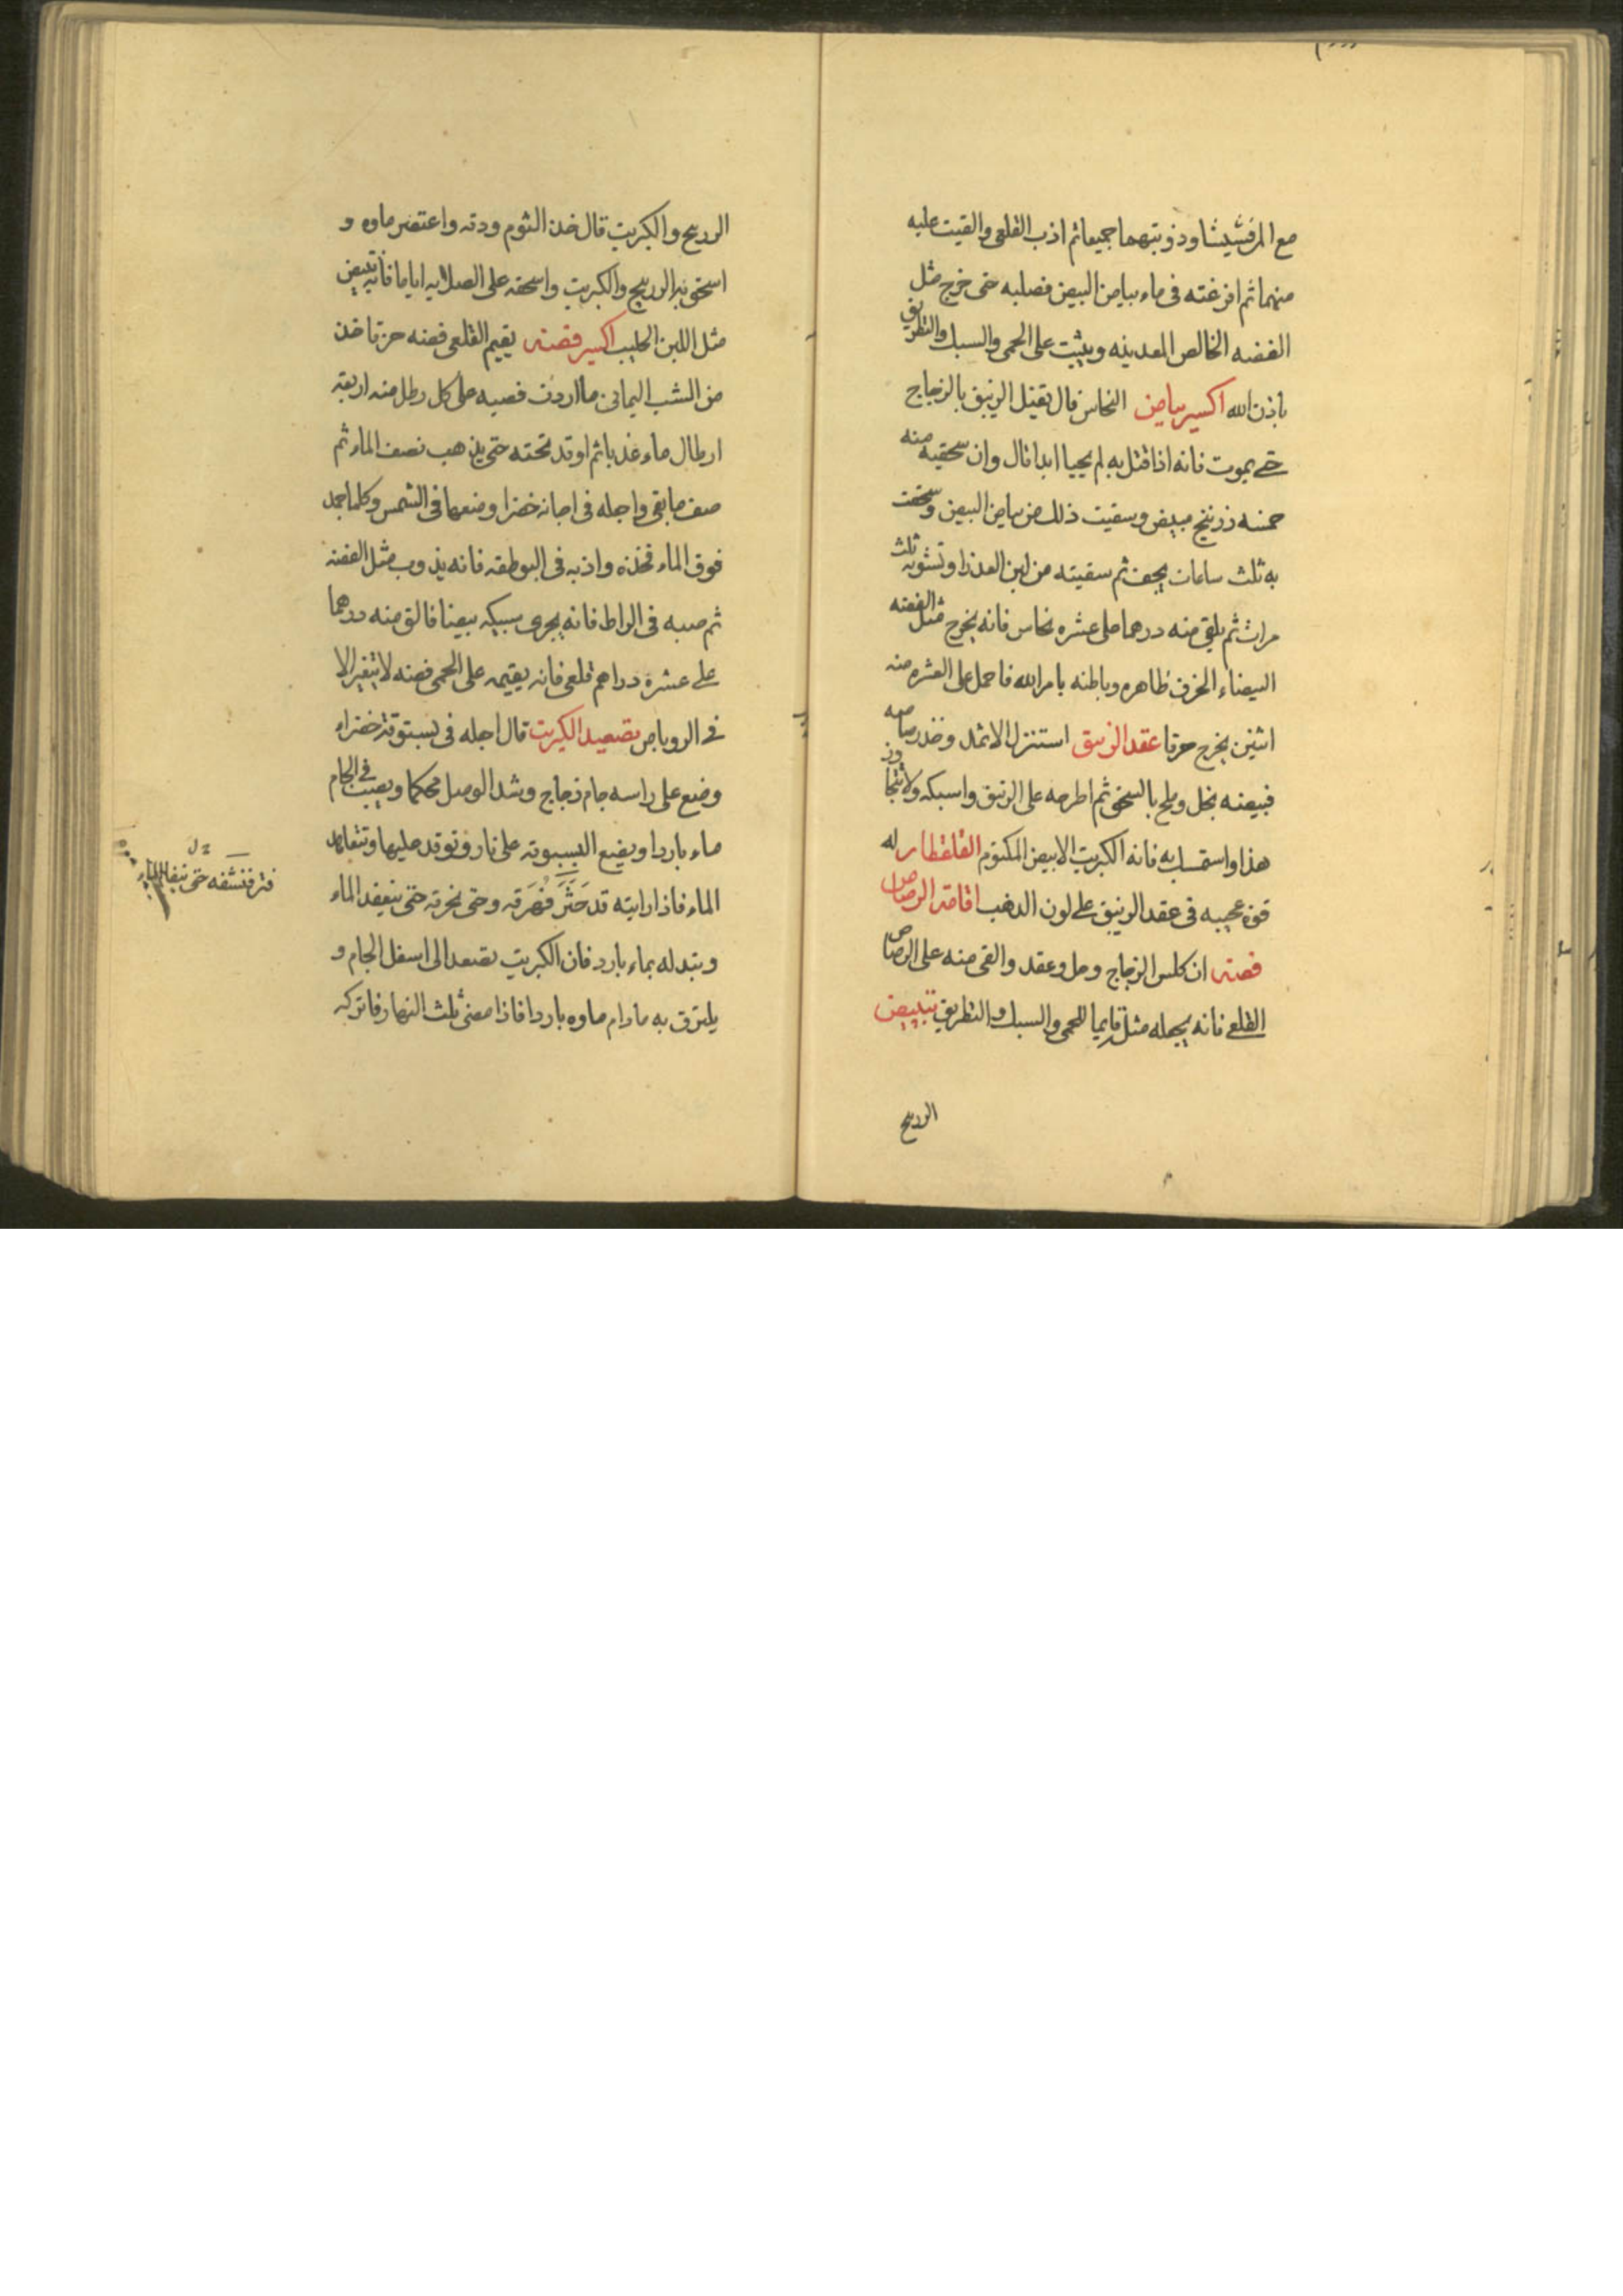 مع المرقشيشا وذوبتهما جميعا ثم اذب القلعى والقيت عليه
منهما ثم افرغته فى ماء بياض البيض فصلبه حتى خرج مثل
الفضه الخالص المعدنيه ويثبت على الحمى والسبك والتطريق
باذن الله اكسير بياض النحاس قال تقتل الزيبق بالزجاج
حتى يموت فانه اذا قتل به لم يحيا ابدا قال وان سحقيه منه
خمسه زرنيخ مبيض وسقيت ذلك من بياض البيض وسحقت
به ثلث ساعات يجف ثم سقيته من لبن العذرا وتشويه ثلث
مراث ثم يلقى منه درهما على عشره نحاس فانه يخرج مثل الفضه
البيضاء الحزف ظاهره وباطنه بامر الله فاحمل على العشره منه
اثنين يخرج حرقا عقد الزيبق استنزل الاثمد وخذ رصاصه
فبيضه بخل وملح بالسحق ثم اطرحه على الزيبق واسبكه ولا تتجاوز
هذا واستمسك به فانه الكبريت الابيض المكتوم القلقطار له
قوة عجيبه فى عقد الزيبق على لون الذهب اقامة الرصاص
فضة ان كلس الزجاج وحل وعقد والقى منه على الرصاص
القلعى فانه يجعله مثل قايما للحمى والسبك والتطريق تبييض
الزرنيخ
الزرنيخ والكبريت قال خذ الثوم ودقه واعتصر ماوه و
اسحق به الزرنيخ والكبريت واسحقه على الصلايه اياما فانه تبيض
مثل اللبن الحليب اكسير فضة يقيم القلعى فضه حرقا خذ
من الشب اليمانى ما اردت فصبه على كل رطل منه اربعة
ارطال ماء عذبا ثم اوقد تحته حتى يذهب نصف الماء ثم
صف ما بقى واجله فى اجانه خضرا وضعها فى الشمس وكلما جمد
فوق الماء فخذه واذبه فى البوطقه فانه يذوب مثل الفضة
ثم صبه فى الراط فانه يجرى سبيكه بيضا فالق منه درهما
على عشرة دراهم قلعى فانه يقيمه على الحمى فضه لا يتغير الا
فى الروباص تصعيد الكبريت قال اجله فى بستوقة خضراء
وضع على راسه جام زجاج وشد الوصل محكما ويصب فى الجام
ماء باردا ويضع البستوقة على نار وتوقد عليها وتتعاهد
الماء فاذا رايته قد خثر فهرقه وحتى تحرقه حتى ينعقد الماء
ويتبدله بماء بارد فان الكبريت يصعد الى اسفل الجام و
يلتزق به ما دام ماوه باردا فاذا مضى ثلث النهار فاتركه
فتر فنشفه حتى